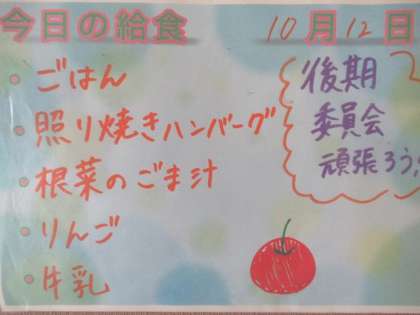 今日の給食 10月12日
・ごはん
・照り焼きハンバーグ
・根菜のごま汁
・りんご
・牛乳
後期
委員会
頑張ろう